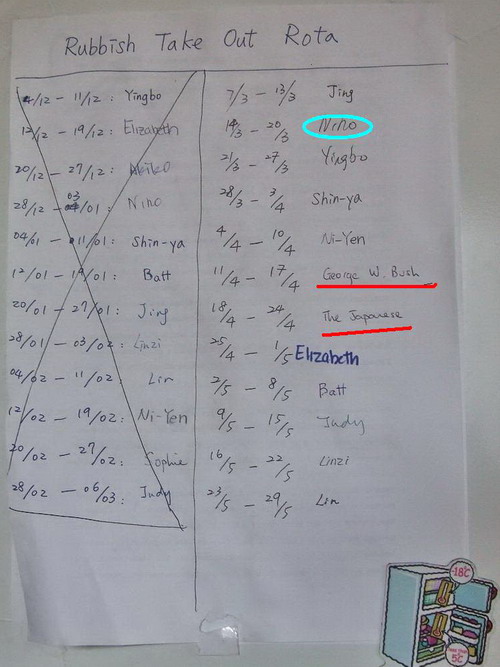 Rubbish Take Out Rota
4/12 - 11/12 : Yingbo
12/12 - 19/12 : Elizabeth
20/12 - 27/12 : Akiko
28/12 - 03/01 : Nino
04/01 - 11/01 : Shin-ya
12/01 - 19/01 : Batt
20/01 - 27/01 : Jing
28/01 - 03/02 : Linzi
04/02 - 11/02 : Lin
12/02 - 19/02 : Ni-Yen
20/02 - 27/02 : Sophie
28/02 - 06/03 : Judy
7/3 - 13/3 Jing
14/3 - 20/3 Nino
21/3 - 27/3 Yingbo
28/3 - 3/4 Shin-ya
4/4 - 10/4 Ni-Yen
11/4 - 17/4 George W. Bush
18/4 - 24/4 The Japanese
25/4 - 1/5 Elizabeth
2/5 - 8/5 Batt
9/5 - 15/5 Judy
16/5 - 22/5 Linzi
23/5 - 29/5 Lin
-18°C
5°C